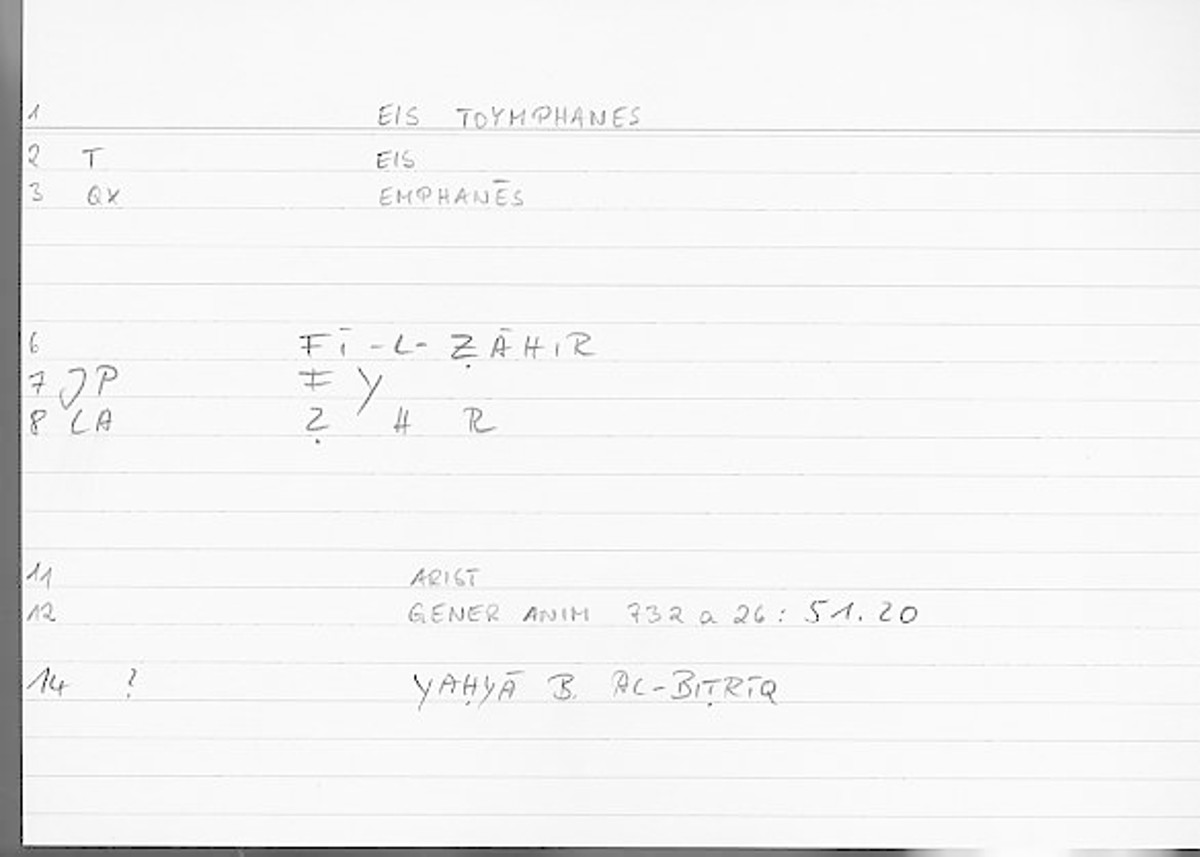 1 EIS TOYMPHANES
2 T EIS
3 QX EMPHANĒS
6 FĪ-L-ẒĀHIR
7 JP F Y
8 LA Ẓ H R
11 ARIST
12 GENER ANIM 732 a 26: 51.20
14 ? YAḤYĀ B. AL-BIṬRĪQ